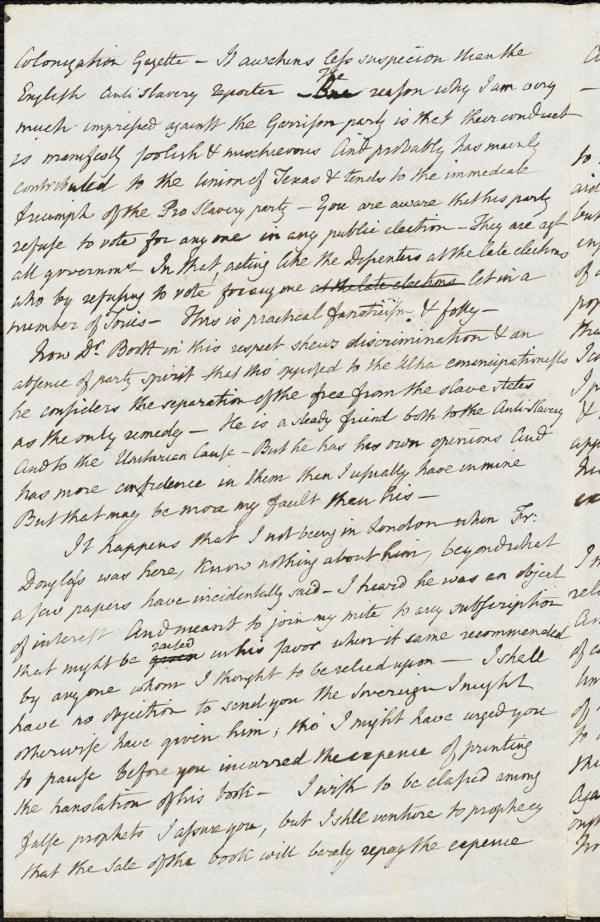 Colonization Gazette – It awakens less suspicion than the
English Anti Slavery reporter – The reason why I am very
much impressed against the Garrison party is that their conduct
is manifestly foolish & mischievous And probably has mainly
contributed to the Union of Texas & tends to the immediate
triumph of the Pro Slavery party – You are aware that his party
refuse to vote for any one in any public election – They are agt
all governmt In that, acting like the Dissenters at the late elections
who by refusing to vote for any one at the late elections let in a
number of Tories – This is practical fanaticism & folly –
Now Dr. Boott in this respect shews discrimination & an
absence of party spirit that tho' opposed to the Ultra emancipationists
he considers the separation of the free from the slave states
as the only remedy – He is a steady friend both to the Anti-Slavery
And to the Unitarian Cause – But he has his own opinions And
has more confidence in them than I usually have in mine
But that may be more my fault than his –
It happens that I not being in London when Fr:
Douglass was here, know nothing about him, beyond what
a few papers have incidentally said – I heard he was an object
of interest And meant to join my mite to any subscription
that might be given raised in his favor when it came recommended
by any one whom I thought to be relied upon – I shall
have no objection to send you the Sovereign I might
otherwise have given him; tho' I might have urged you
to pause before you incurred the expence of printing
the translation of his book – I wish to be classed among
false prophets I assure you, but I shll venture to prophecy
that the Sale of the book will barely repay the expence